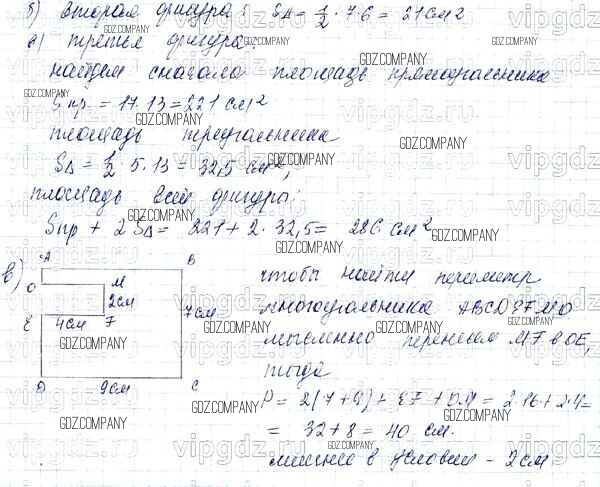 б) вторая фигура: S△ = 1/2 · 7·6 = 21 см²
в) третья фигура:
найдем сначала площадь прямоугольника
Sпр = 17·13 = 221 см²
площадь треугольника
S△ = 1/2 · 5·13 = 32,5 см²,
площадь всей фигуры:
Sпр + 2S△ = 221 + 2·32,5 = 286 см²
в)
A B
O M
2см
E 4см F 7см
D 9см C
чтобы найти периметр
многоугольника ABCDEFMO
мысленно перенесем MF в OE,
тогда
P = 2(7+9) + EF + OM = 2·16 + 2·4 =
= 32 + 8 = 40 см.
лишнее в условии – 2см
GDZ.COMPANY
vipgdz.ru